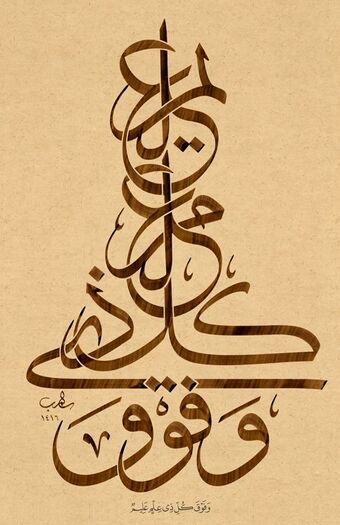 وفوق كل ذي علم عليم
١٤١٦
وَفَوْقَ كُلِّ ذِي عِلْمٍ عَلِيمٌ